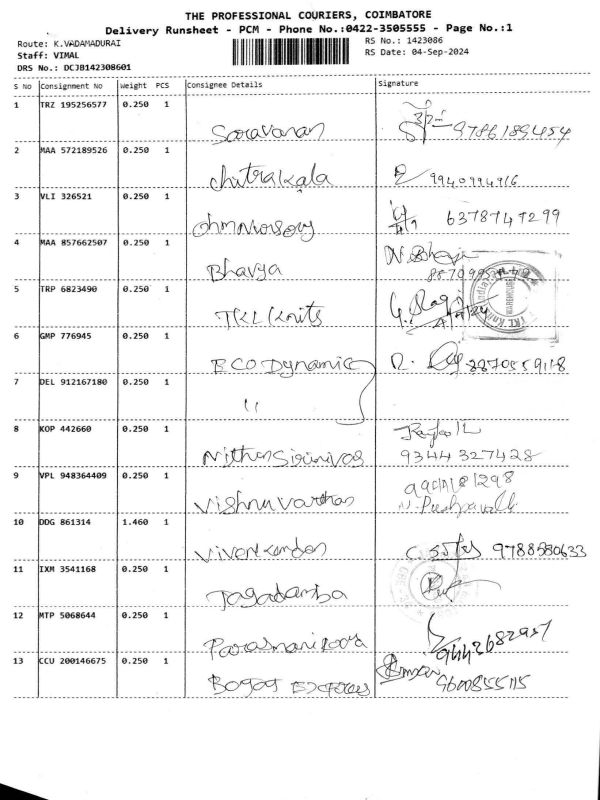 THE PROFESSIONAL COURIERS, COIMBATORE
Delivery Runsheet - PCM - Phone No.:0422-3505555 - Page No.:1
Route: K.VADAMADURAI
RS No.: 1423086
Staff: VIMAL
RS Date: 04-Sep-2024
DRS No.: DCJB142308601
S No Consignment No Weight PCS Consignee Details Signature
1 TRZ 195256577 0.250 1
Saravanan 9786189454
2 MAA 572189526 0.250 1
chitrakala 9940994916
3 VLI 326521 0.250 1
6378747299
4 MAA 857662507 0.250 1
Bhavya N. Bhavya
5 TRP 6823490 0.250 1
TKL Knits 4/9/24
WAREHOUSE
6 GMP 776945 0.250 1
ECO Dynamic R.
7 DEL 912167180 0.250 1
"
8 KOP 442660 0.250 1
Nithan Sirinivas
9344327428
9 VPL 948364409 0.250 1
Vishnu Varthan
10 DDG 861314 1.460 1
9788580633
11 IXM 3541168 0.250 1
Jagadamba
12 MTP 5068644 0.250 1
9442682957
13 CCU 200146675 0.250 1
9600855115